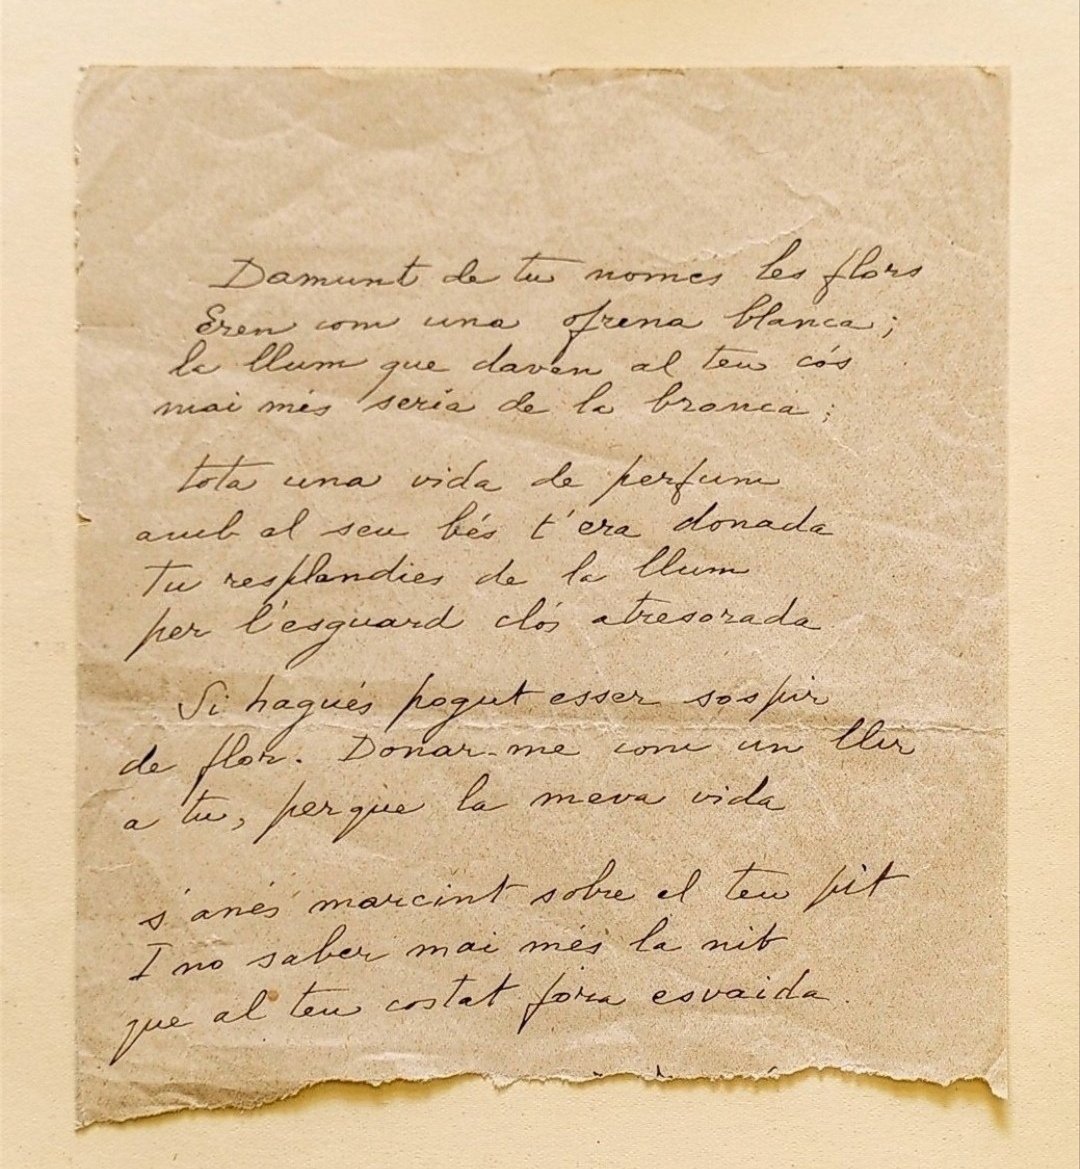 Damunt de tu nomes les flors
Eren com una ofrena blanca;
la llum que daven al teu cós
mai més seria de la branca;
tota una vida de perfum
amb al seu bés t'era donada
Tu resplandies de la llum
per l'esguard clós atresorada
Si hagués pogut esser sospir
de flor. Donar-me com un llir
a tu, perque la meva vida
s'anés marcint sobre el teu pit
I no saber mai més la nit
que al teu costat fora esvaida.